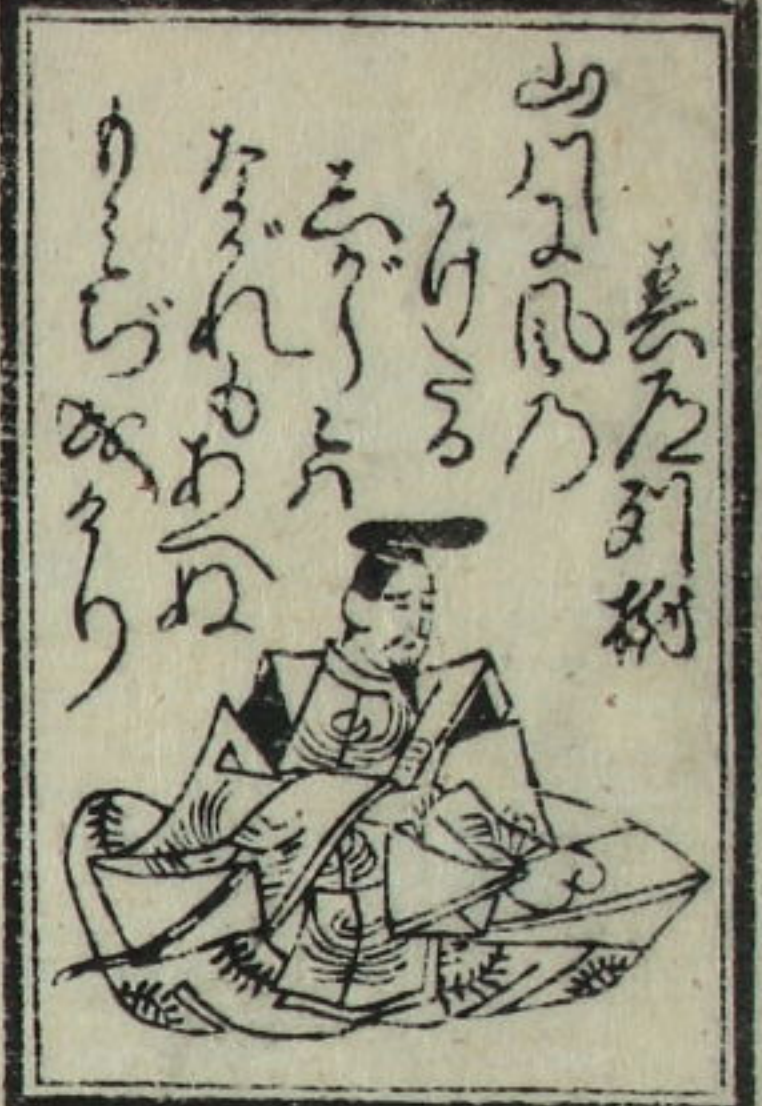 春道列樹
山川に風の
かけたる
しがらみは
ながれもあへぬ
もみぢ成けり